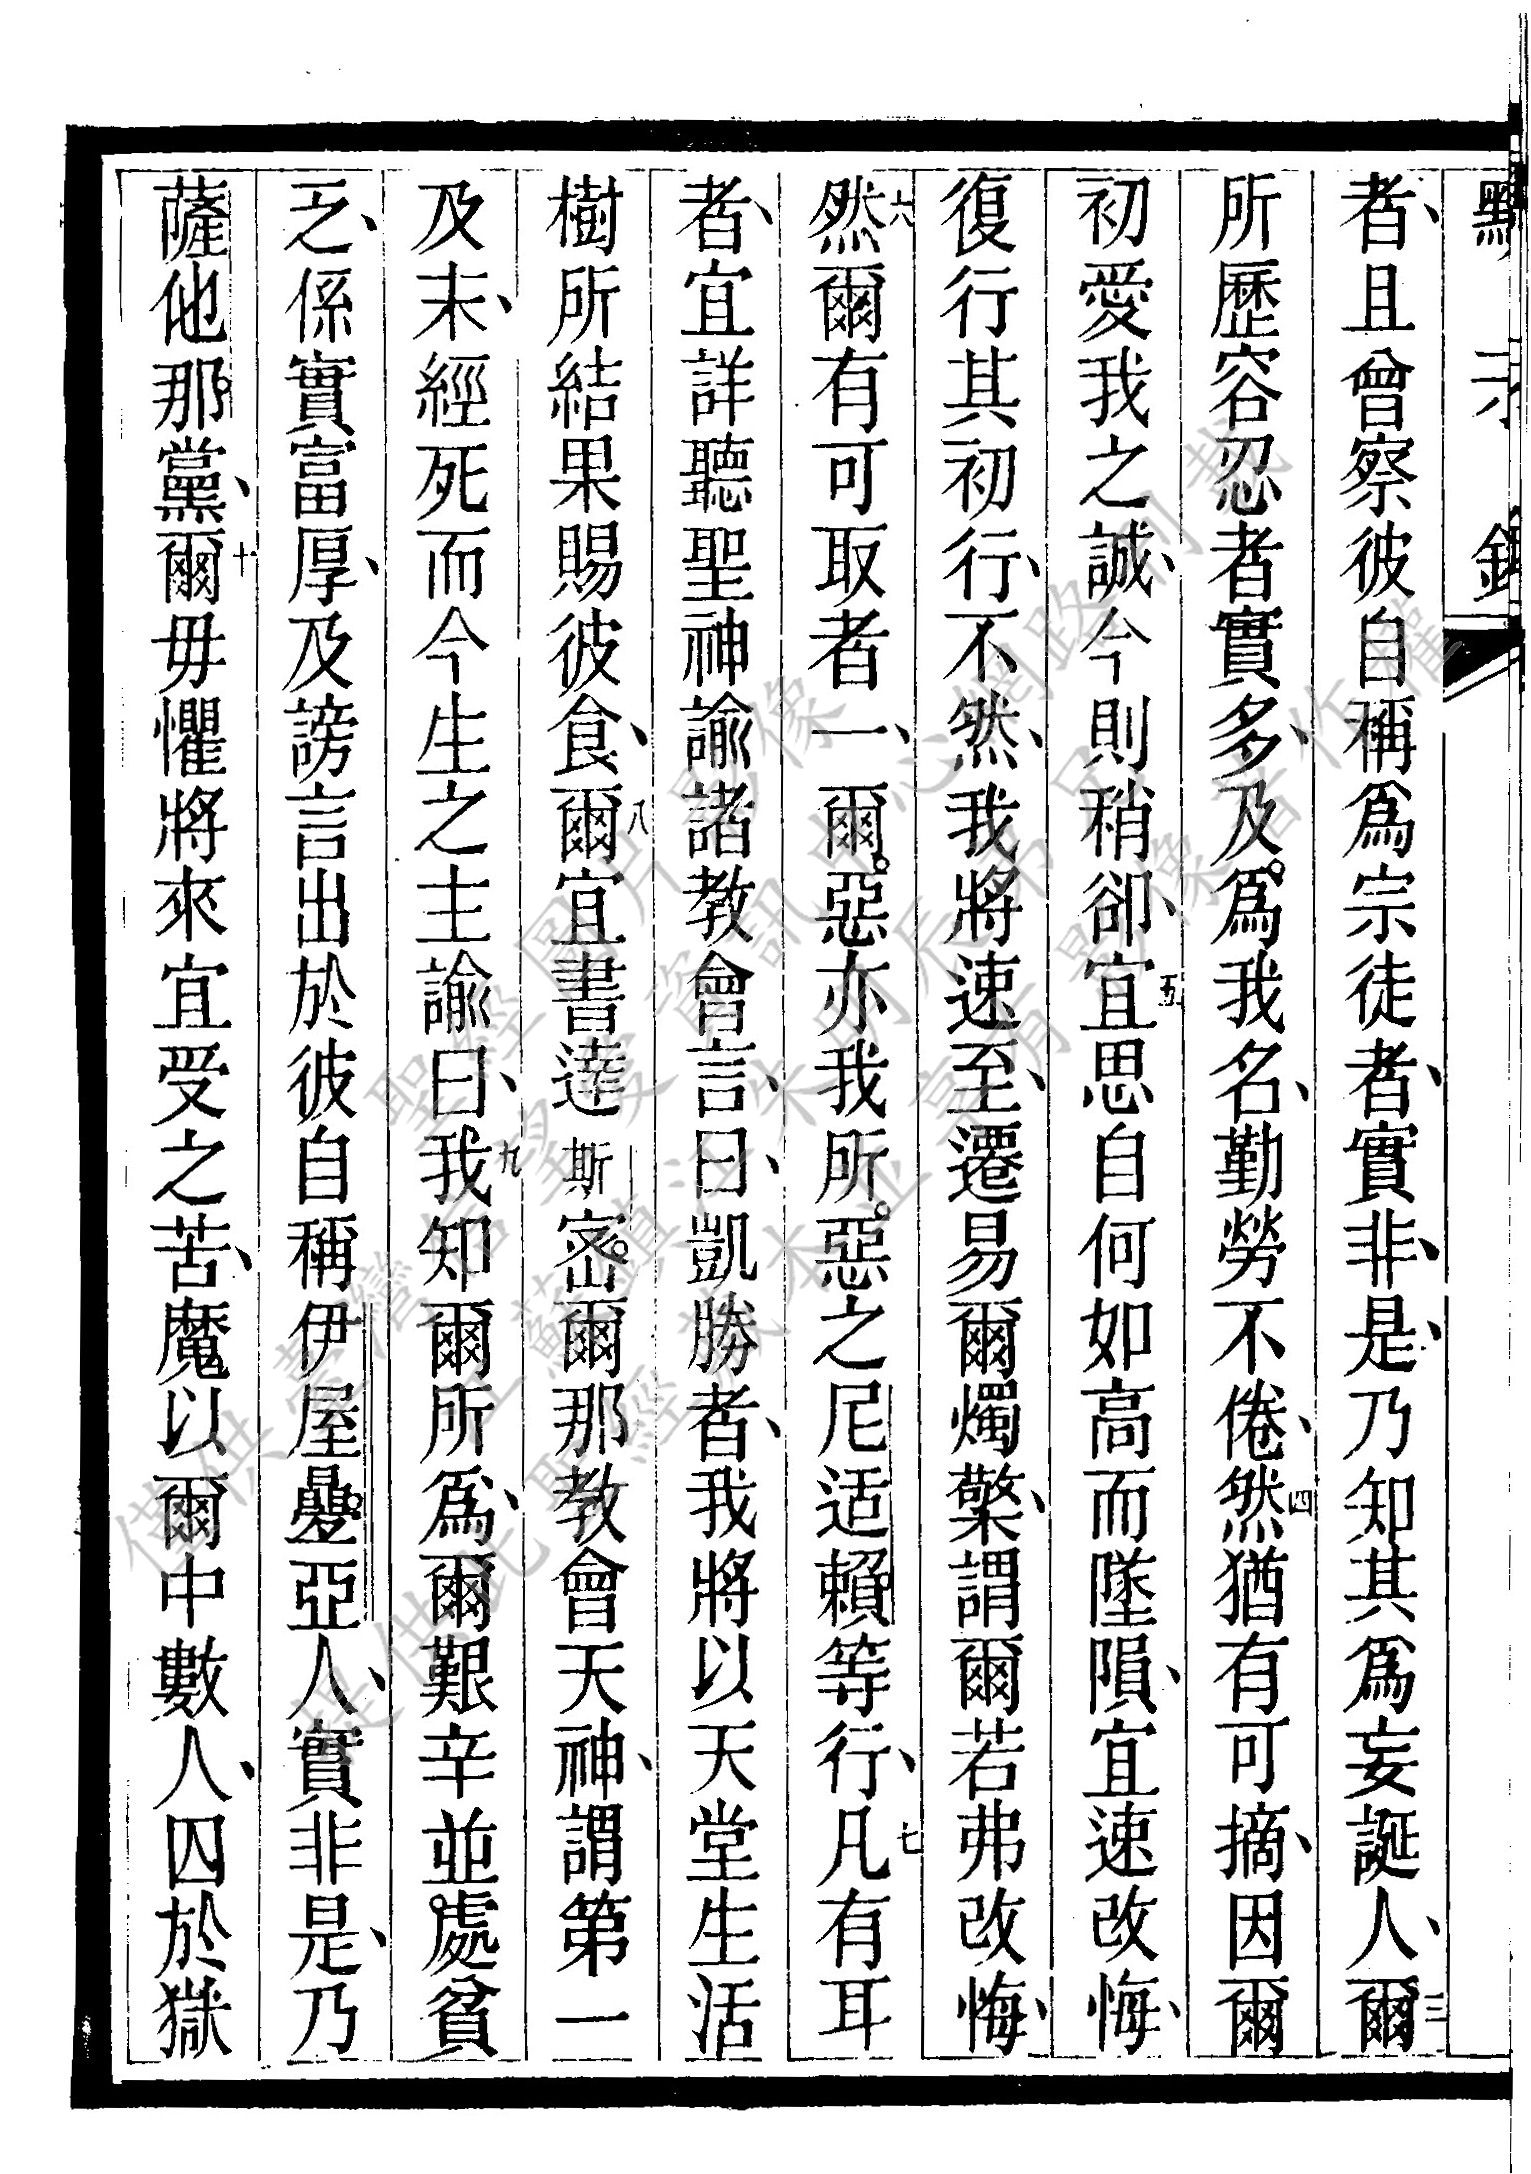 默示錄
者、且曾察彼自稱爲宗徒者、實非是、乃知其爲妄誕人、三爾
所歷容忍者實多、及爲我名、勤勞不倦、四然猶有可摘、因爾
初愛我之誠、今則稍卻、五宜思自何如高而墜隕、宜速改悔、
復行其初行、不然、我將速至、遷易爾燭檠、謂爾若弗改悔、
六然爾有可取者一、爾惡亦我所惡之尼适賴等行、七凡有耳
者、宜詳聽聖神諭諸教會言、曰、凱勝者、我將以天堂生活
樹所結果賜彼食、八爾宜書達斯密爾那教會天神、謂第一
及末、經死而今生之主諭曰、九我知爾所爲、爾艱辛並處貧
乏、係實富厚、及謗言出於彼自稱伊屋疊亞人、實非是、乃
薩他那黨、十爾毋懼將來宜受之苦、魔以爾中數人、囚於獄
僅供臺灣信望愛資訊中心網路刊載